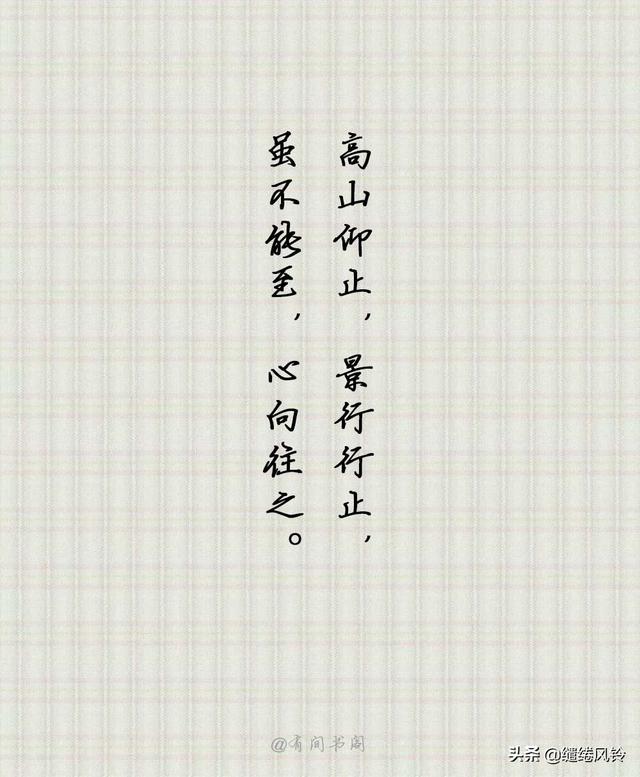 高山仰止，景行行止，
虽不能至，心向往之。
@有间书阁
头条 @缱绻风铃